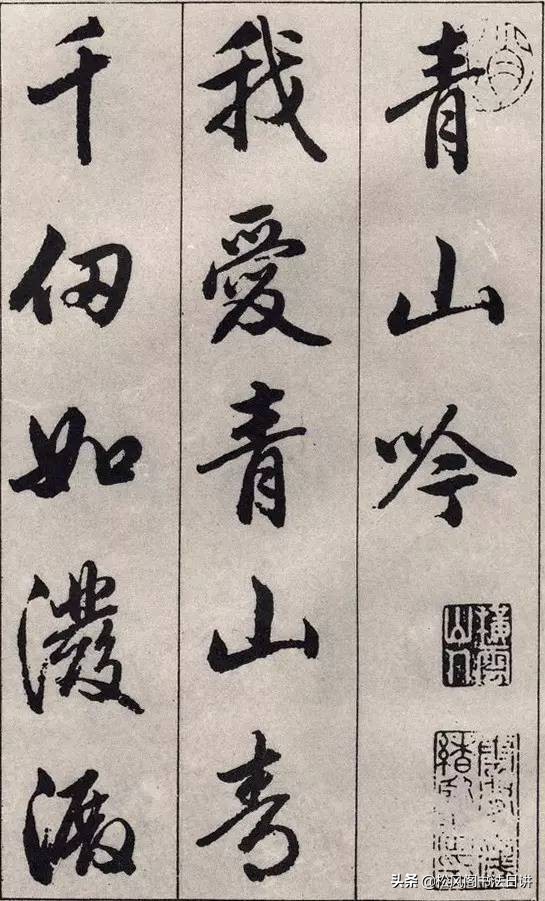 青山吟
橫雲山人
我愛青山青
千仞如潑澱
头条 @松风阁书法日讲